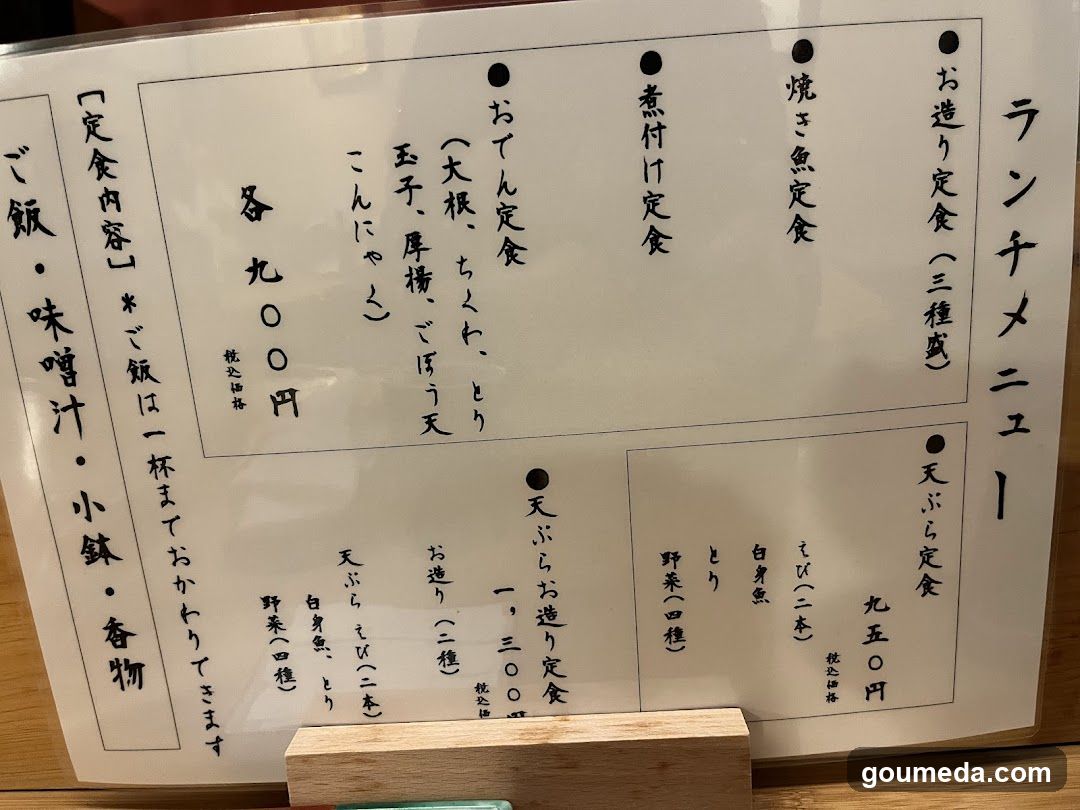 ランチメニュー
●お造り定食(三種盛)
●焼き魚定食
●煮付け定食
●おでん定食
(大根、ちくわ、とり
玉子、厚揚、ごぼう天
こんにゃく)
各 九〇〇円
税込価格
●天ぷら定食
九五〇円
税込価格
えび(二本)
白身魚
とり
野菜(四種)
●天ぷらお造り定食
一、三〇〇円
税込価
お造り(二種)
天ぷら えび(二本)
白身魚、とり
野菜(四種)
[定食内容] *ご飯は一杯までおかわりできます
ご飯・味噌汁・小鉢・香物
goumeda.com